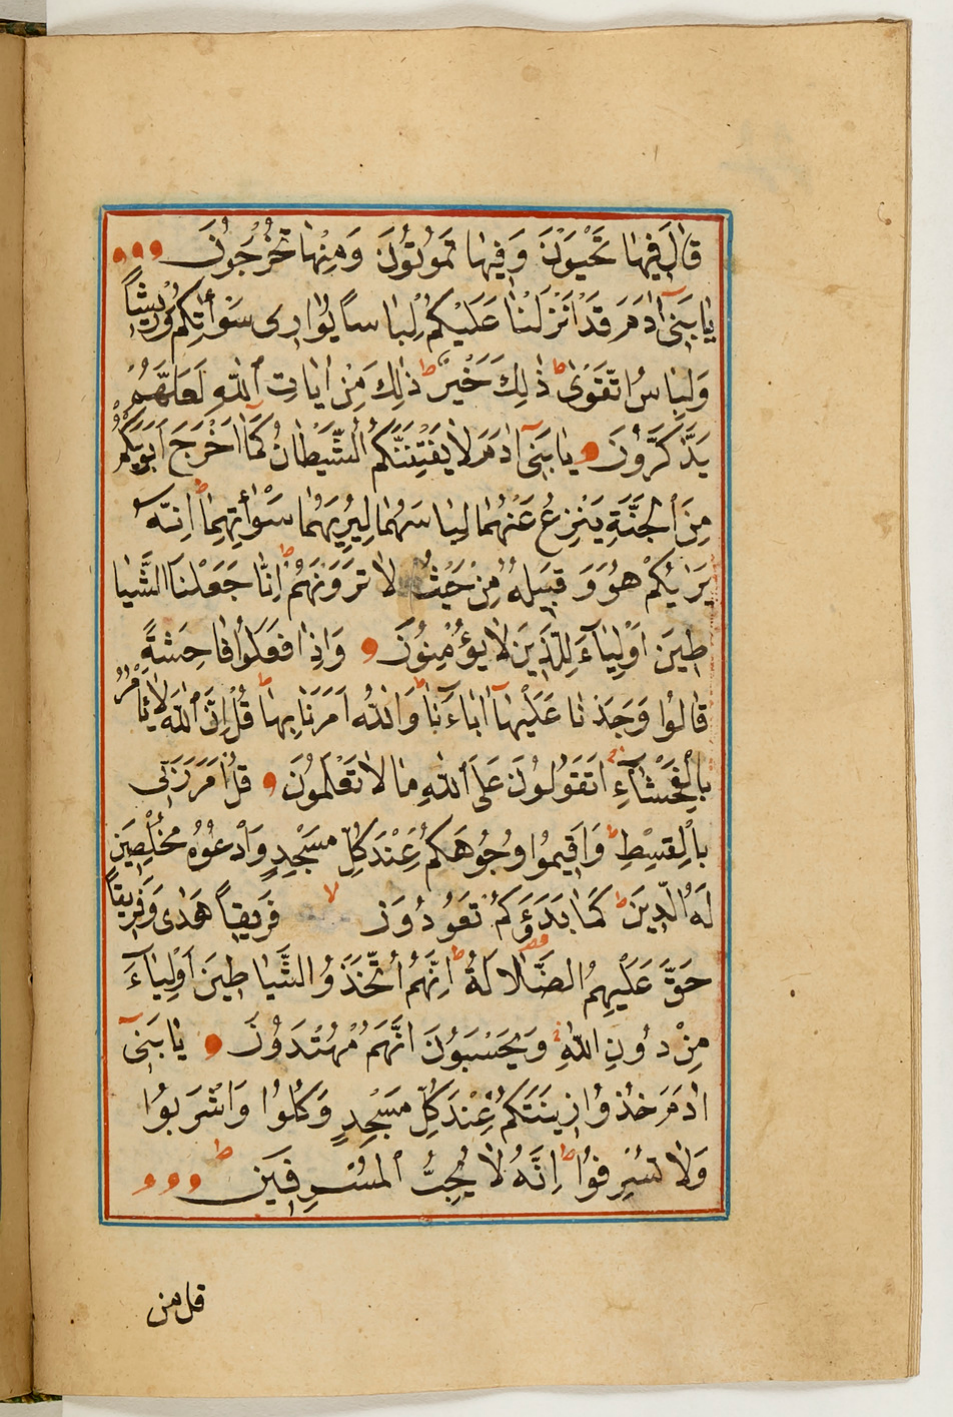 قَالَ فِيهَا تَحْيَوْنَ وَفِيهَا تَمُوتُونَ وَمِنْهَا تُخْرَجُونَ
يَابَنِىٓ اٰدَمَ قَدْ اَنْزَلْنَا عَلَيْكُمْ لِبَاسًا يُوَارِى سَوْاٰتِكُمْ وَرِيشًا
وَلِبَاسُ التَّقْوٰى ط ذٰلِكَ خَيْرٌ ط ذٰلِكَ مِنْ اٰيَاتِ اللّٰهِ لَعَلَّهُمْ
يَذَّكَّرُونَ يَابَنِىٓ اٰدَمَ لَا يَفْتِنَنَّكُمُ الشَّيْطَانُ كَمَٓا اَخْرَجَ اَبَوَيْكُمْ
مِنَ الْجَنَّةِ يَنْزِعُ عَنْهُمَا لِبَاسَهُمَا لِيُرِيَهُمَا سَوْاٰتِهِمَا ط اِنَّهُ
يَرَيٰكُمْ هُوَ وَقَبِيلُهُ مِنْ حَيْثُ لَا تَرَوْنَهُمْ ط اِنَّا جَعَلْنَا الشَّيَا
طِينَ اَوْلِيَٓاءَ لِلَّذِينَ لَا يُؤْمِنُونَ وَاِذَا فَعَلُوا فَاحِشَةً
قَالُوا وَجَدْنَا عَلَيْهَٓا اٰبَٓاءَنَا وَاللّٰهُ اَمَرَنَا بِهَا ط قُلْ اِنَّ اللّٰهَ لَا يَاْمُرُ
بِالْفَحْشَٓاءِ ط اَتَقُولُونَ عَلَى اللّٰهِ مَا لَا تَعْلَمُونَ قُلْ اَمَرَ رَبِّى
بِالْقِسْطِ ط وَاَقِيمُوا وُجُوهَكُمْ عِنْدَ كُلِّ مَسْجِدٍ وَادْعُوهُ مُخْلِصِينَ
لَهُ الدِّينَ ط كَمَا بَدَؤَكُمْ تَعُودُونَ لا فَرِيقًا هَدٰى وَفَرِيقًا
حَقَّ عَلَيْهِمُ الضَّلَالَةُ ط اِنَّهُمُ اتَّخَذُوا الشَّيَاطِينَ اَوْلِيَٓاءَ
مِنْ دُونِ اللّٰهِ وَيَحْسَبُونَ اَنَّهُمْ مُهْتَدُونَ يَابَنِىٓ
اٰدَمَ خُذُوا زِينَتَكُمْ عِنْدَ كُلِّ مَسْجِدٍ وَكُلُوا وَاشْرَبُوا
وَلَا تُسْرِفُوا ط اِنَّهُ لَا يُحِبُّ الْمُسْرِفِينَ ط
قل من